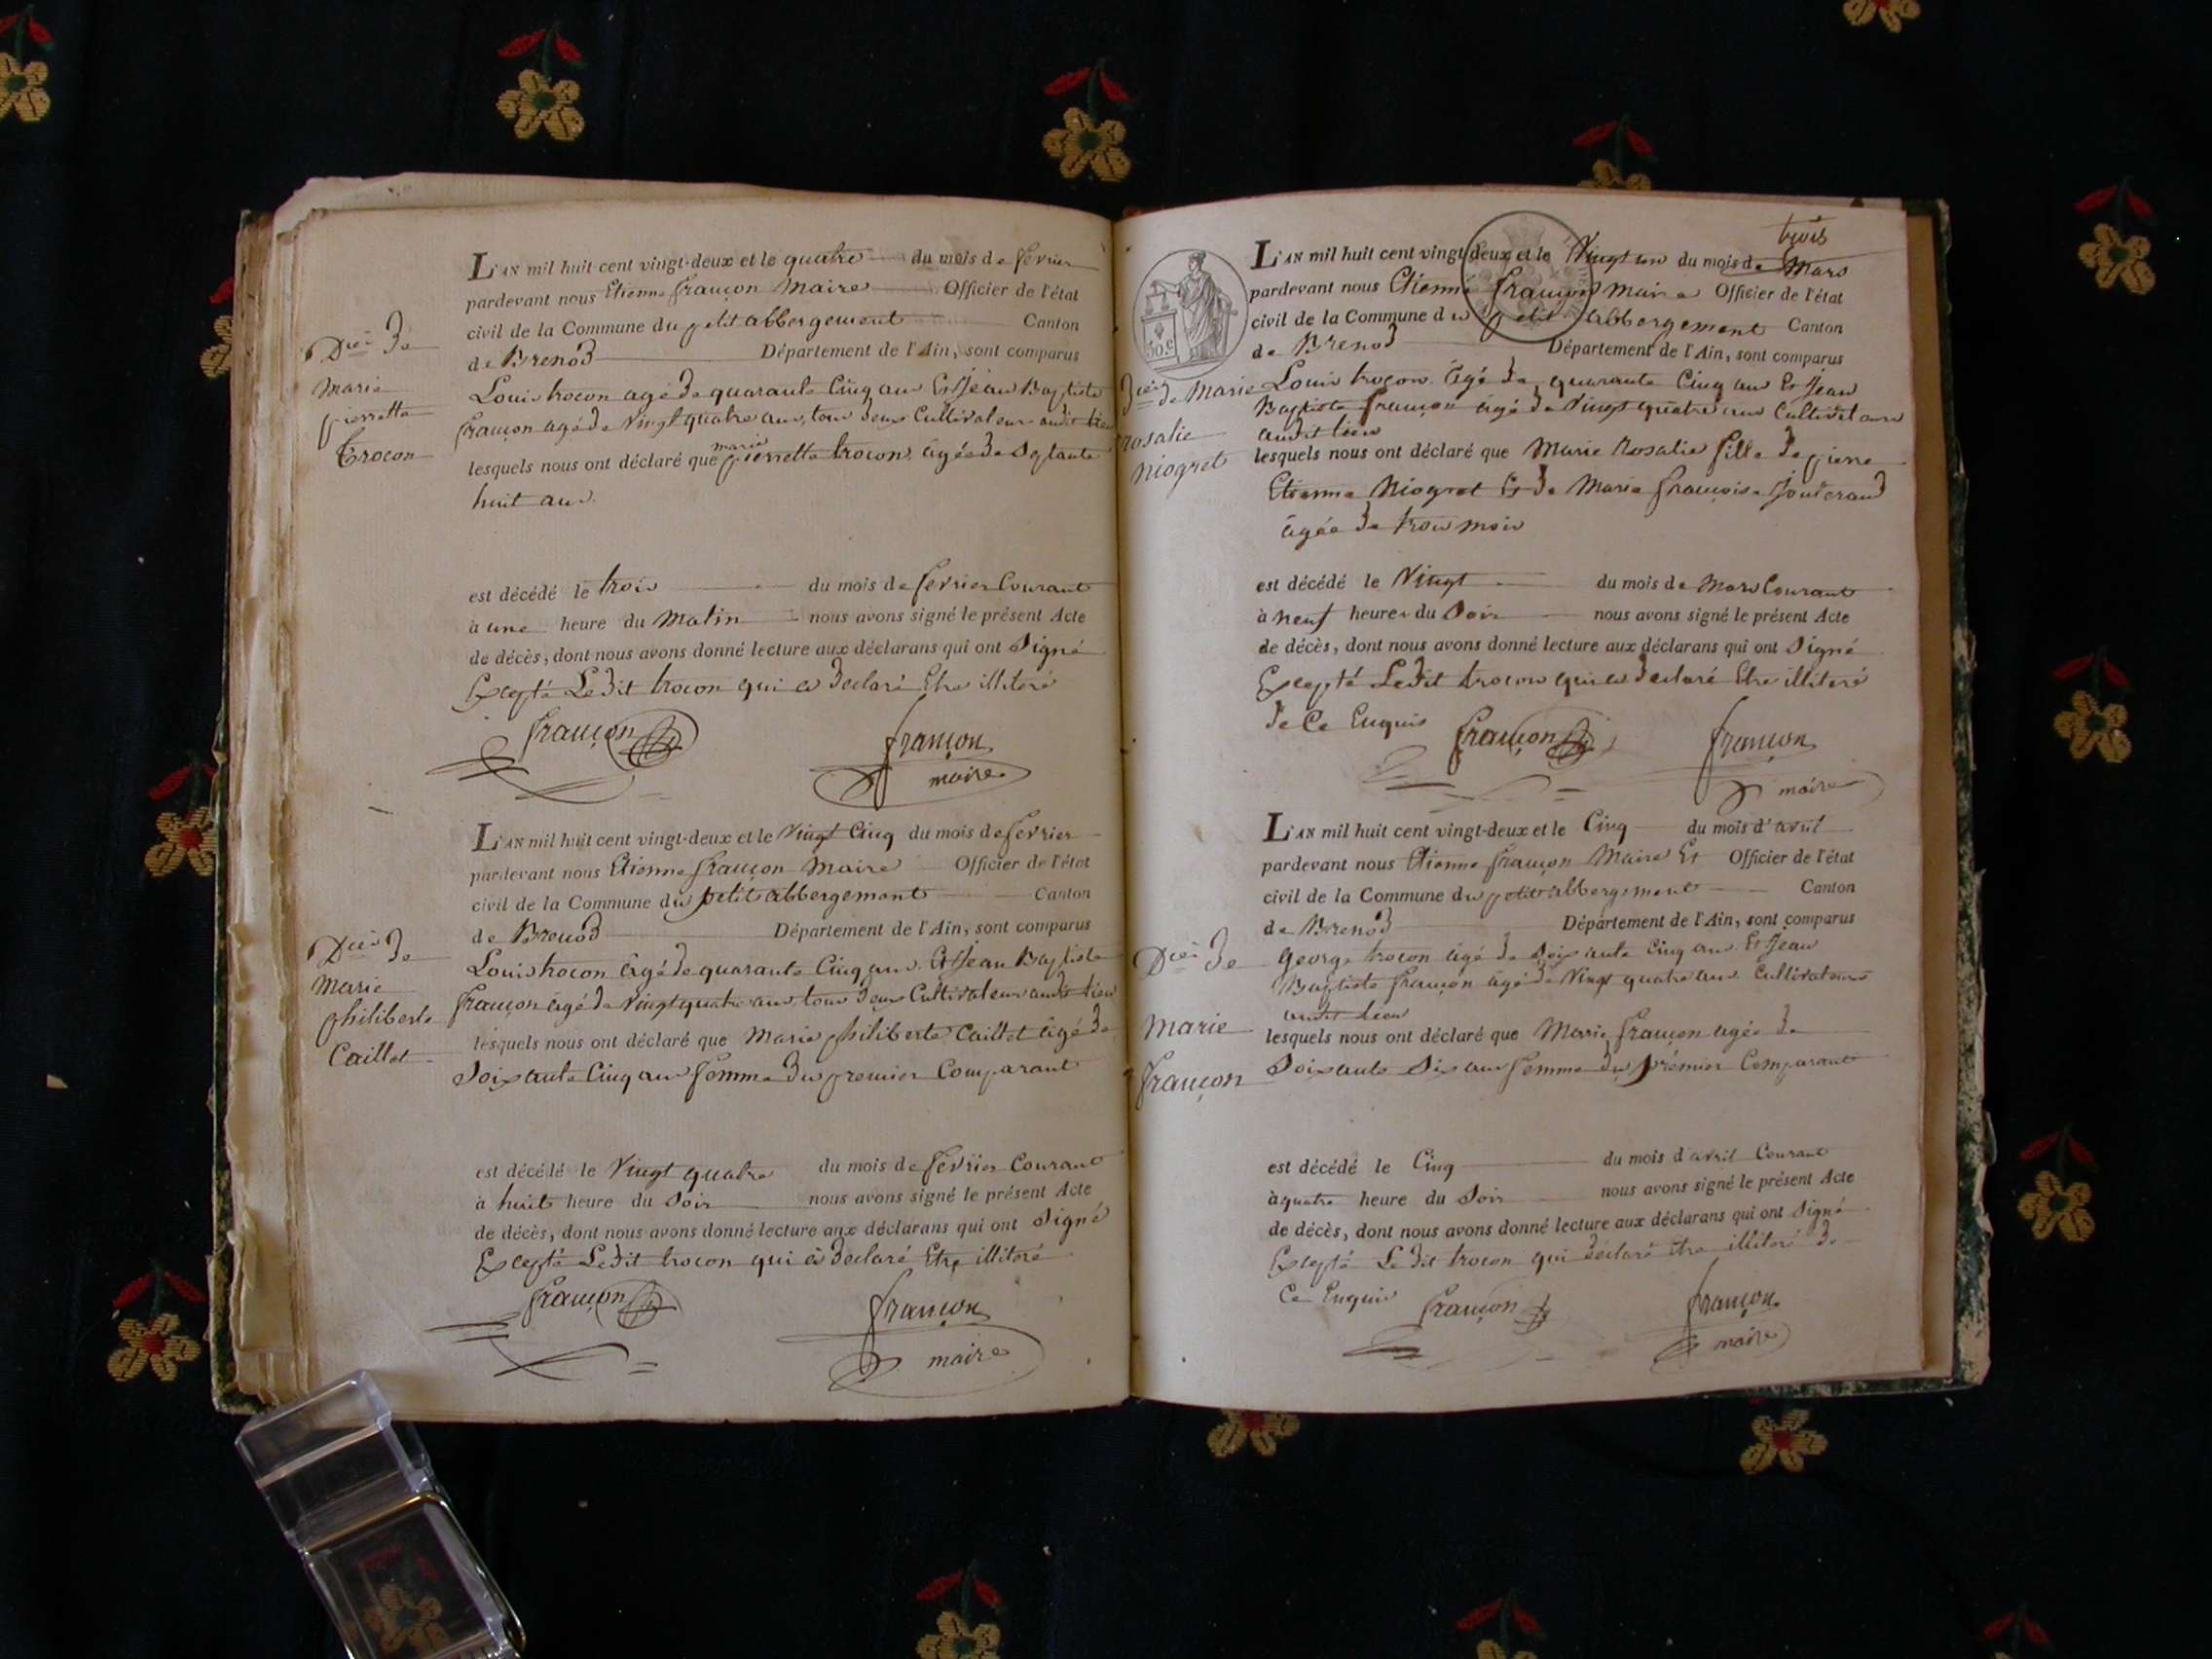 L'AN mil huit cent vingt-deux et le quatre du mois de fevrier
pardevant nous Etienne françon Maire Officier de l'état
civil de la Commune du petit abbergement Canton
de Brenod Département de l'Ain, sont comparus
Louis trocon agé de quarante Cinq ans Et Jean Baptiste
françon agé de Vingt quatre ans, tous deux Cultivateurs audit lieu
lesquels nous ont déclaré que marie pierrette trocon âgée de Septante
huit ans.
Dcès de
Marie
pierrette
Trocon
est décédé le trois du mois de fevrier Courant
à une heure du Matin nous avons signé le présent Acte
de décès, dont nous avons donné lecture aux déclarans qui ont Signé
Excepté Ledit trocon qui a declaré Etre illiteré
françon françon
maire
L'AN mil huit cent vingt-deux et le Vingt Cinq du mois de fevrier
pardevant nous Etienne françon Maire Officier de l'état
civil de la Commune du petit abbergement Canton
de Brenod Département de l'Ain, sont comparus
Louis trocon âgé de quarante Cinq ans Et Jean Baptiste
françon âgé de Vingt quatre ans tous deux Cultivateurs audit lieu
lesquels nous ont déclaré que Marie philiberte Caillet âgé de
Soixante Cinq ans femme du premier Comparant
Dcès de
Marie
philiberte
Caillet
est décédé le Vingt quatre du mois de fevrier Courant
à huit heure du Soir nous avons signé le présent Acte
de décès, dont nous avons donné lecture aux déclarans qui ont Signé
Excepté Ledit trocon qui a declaré Etre illiteré
françon françon
maire
trois
L'AN mil huit cent vingt-deux et le Vingt un du mois de Mars
pardevant nous Etienne françon Maire Officier de l'état
civil de la Commune du petit abbergement Canton
de Brenod Département de l'Ain, sont comparus
Louis trocon âgé de quarante Cinq ans Et Jean
Baptiste françon âgé de Vingt quatre ans Cultivateurs
audit lieu
lesquels nous ont déclaré que Marie Rosalie fille de pierre
Etienne Niogret Et de Marie françoise
âgée de trois mois
50 c
Dcès de Marie
rosalie
Niogret
est décédé le Vingt du mois de Mars Courant
à neuf heures du Soir nous avons signé le présent Acte
de décès, dont nous avons donné lecture aux déclarans qui ont Signé
Excepté Ledit trocon qui a declaré Etre illiteré
de Ce Enquis françon françon
maire
L'AN mil huit cent vingt-deux et le Cinq du mois d'avril
pardevant nous Etienne françon Maire Et Officier de l'état
civil de la Commune du petit abbergement Canton
de Brenod Département de l'Ain, sont comparus
George trocon âgé de Soixante Cinq ans Et Jean
Baptiste françon âgé de Vingt quatre ans Cultivateurs
audit lieu
lesquels nous ont déclaré que Marie françon agée de
Soixante Six ans femme du prémier Comparant
Dcès de
Marie
françon
est décédé le Cinq du mois d'avril Courant
à quatre heure du Soir nous avons signé le présent Acte
de décès, dont nous avons donné lecture aux déclarans qui ont Signé
Excepté Le dit trocon qui déclaré etre illiteré de
Ce Enquis françon françon
maire